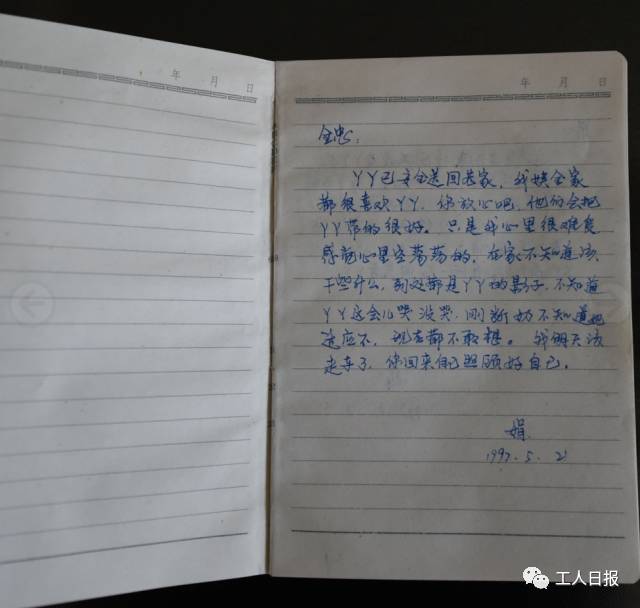 年 月 日
年 月 日
全忠:
丫丫已安全送回老家,我姨全家
都很喜欢丫丫,你放心吧,他们会把
丫丫带的很好。只是我心里很难受
感觉心里空荡荡的,在家不知道该
干些什么,到处都是丫丫的影子,不知道
丫丫这会儿哭没哭,刚断奶不知道她
适应不,现在都不敢想。我明天该
走车了,你回来自己照顾好自己。
娟
1997.5.21
工人日报